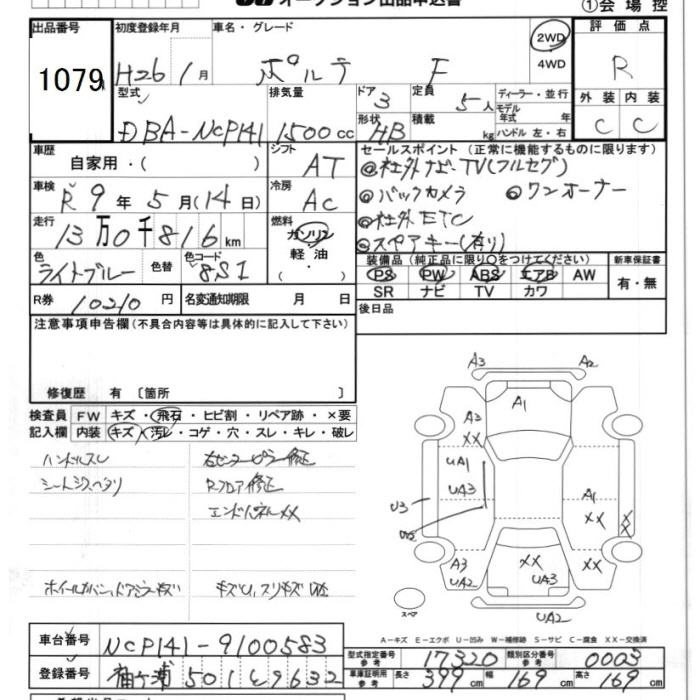 オークション出品申込書
①会場控
出品番号 初度登録年月 車名・グレード 評価点
1079 H26 1月 ポルテ F 2WD 4WD R
型式 排気量 ドア 定員 ディーラー・並行 外装 内装
DBA-NCP141 1500cc 3 5人 モデル年式 年式 C C
形状 HB 積載 kg ハンドル 左・右
車歴 シフト セールスポイント (正常に機能するものに限ります)
自家用・( ) AT ◎社外ナビ・TV(フルセグ)
車検 冷房 ◎バックカメラ ◎ワンオーナー
R9年5月(14日) AC ◎社外ETC
走行 燃料 ◎スペアキー(有り)
13万0千816km ガソリン 軽油
色 色替 色コード 装備品 (純正品に限り○をつけてください) 新車保証書
ライトブルー 8S1 PS PW ABS エアB AW 有・無
SR ナビ TV カワ
R券 10210円 名変通知期限 月 日 後日品
注意事項申告欄(不具合内容等は具体的に記入して下さい)
修復歴 有 〔箇所 〕
検査員 FW キズ・飛石・ヒビ割・リペア跡・×要
記入欄 内装 キズ・汚レ・コゲ・穴・スレ・キレ・破レ
ハンドルスレ 右センターピラー修正
シートシミヘタリ Rフロア修正
エンドパネルXX
ホイールカバー、ドアミラーキズ
A3 A2
A1
A2
XX
UA1
UA3
A1
XX
XX
U3
A3
UA2
XX
UA3
XX
UA2
スペア
A-キズ E-エクボ U-凹み W-補修跡 S-サビ C-腐食 XX-交換済
車台番号 NCP141-9100583
型式指定番号 参考 17320 類別区分番号 参考 0003
登録番号 袖ヶ浦 501 そ 9632
車庫証明用 参考 長さ 399cm 幅 169cm 高さ 169cm